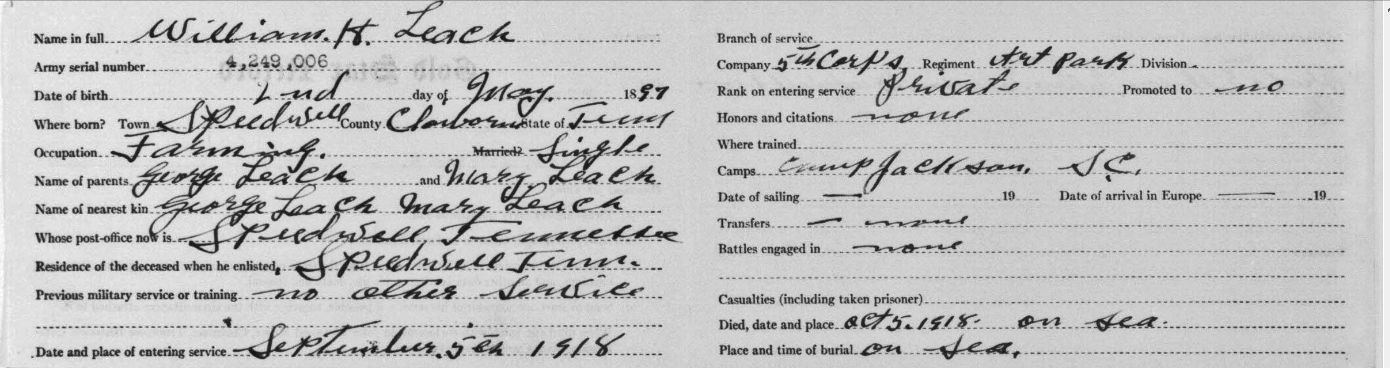 Name in full William. H. Leach
Army serial number 4,249,006
Date of birth 2nd day of May. 1897
Where born? Town Speedwell County Claborne State of Tenn
Occupation Farming. Married? Single
Name of parents George Leach and Mary Leach
Name of nearest kin George Leach Mary Leach
Whose post-office now is Speedwell Tennessee
Residence of the deceased when he enlisted, Speedwell Tenn.
Previous military service or training no other service
Date and place of entering service September 5th 1918
Branch of service
Company 5th Corps Regiment Art Park Division
Rank on entering service Private Promoted to no
Honors and citations none
Where trained
Camps Camp Jackson, S.C.
Date of sailing — 19 Date of arrival in Europe — 19
Transfers — none
Battles engaged in none
Casualties (including taken prisoner)
Died, date and place Oct 5. 1918. on sea.
Place and time of burial on sea.